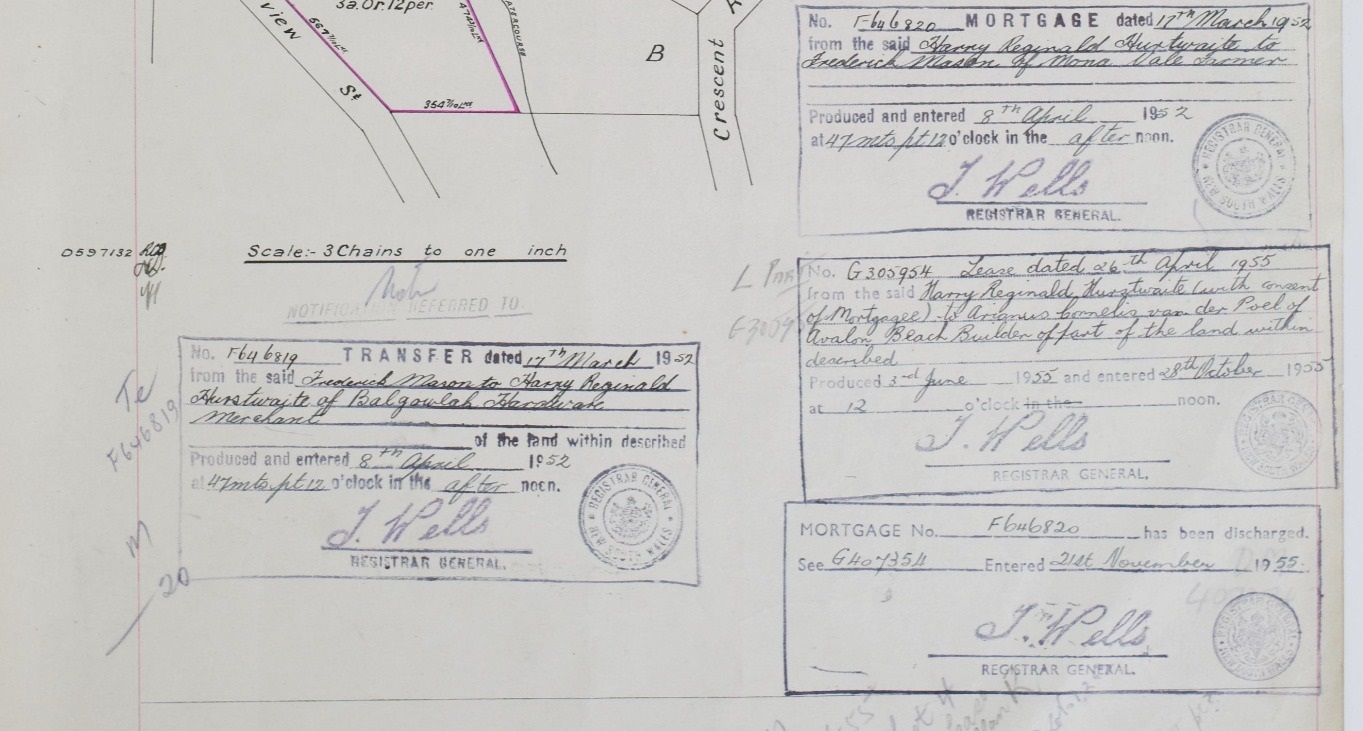 3a.0r.12per.
view St
WATERCOURSE
B
Crescent
Scale:- 3 Chains to one inch
0597132
NOTIFICATION REFERRED TO.
No. F646819 TRANSFER dated 17th March 1952
from the said Frederick Mason to Harry Reginald
Hurstwaite of Balgowlah Hardware
Merchant
of the land within described
Produced and entered 8th April 1952
at 47 mts. pt 12 o'clock in the after noon.
J. Wells
REGISTRAR GENERAL.
REGISTRAR GENERAL NEW SOUTH WALES
F646819
M
20
No. F646820 MORTGAGE dated 17th March 1952
from the said Harry Reginald Hurstwaite to
Frederick Mason of Mona Vale Farmer
Produced and entered 8th April 1952
at 47 mts pt 12 o'clock in the after noon.
J. Wells
REGISTRAR GENERAL.
REGISTRAR GENERAL NEW SOUTH WALES
L Part
No. G305954 Lease dated 26th April 1955
from the said Harry Reginald Hurstwaite (with consent
of Mortgagee) to Arianus Cornelis van der Poel of
Avalon Beach Builder of part of the land within
described
Produced 3rd June 1955 and entered 28th October 1955
at 12 o'clock in the noon.
J. Wells
REGISTRAR GENERAL.
MORTGAGE No. F646820 has been discharged.
See G407354 Entered 21st November 1955.
J. Wells
REGISTRAR GENERAL.